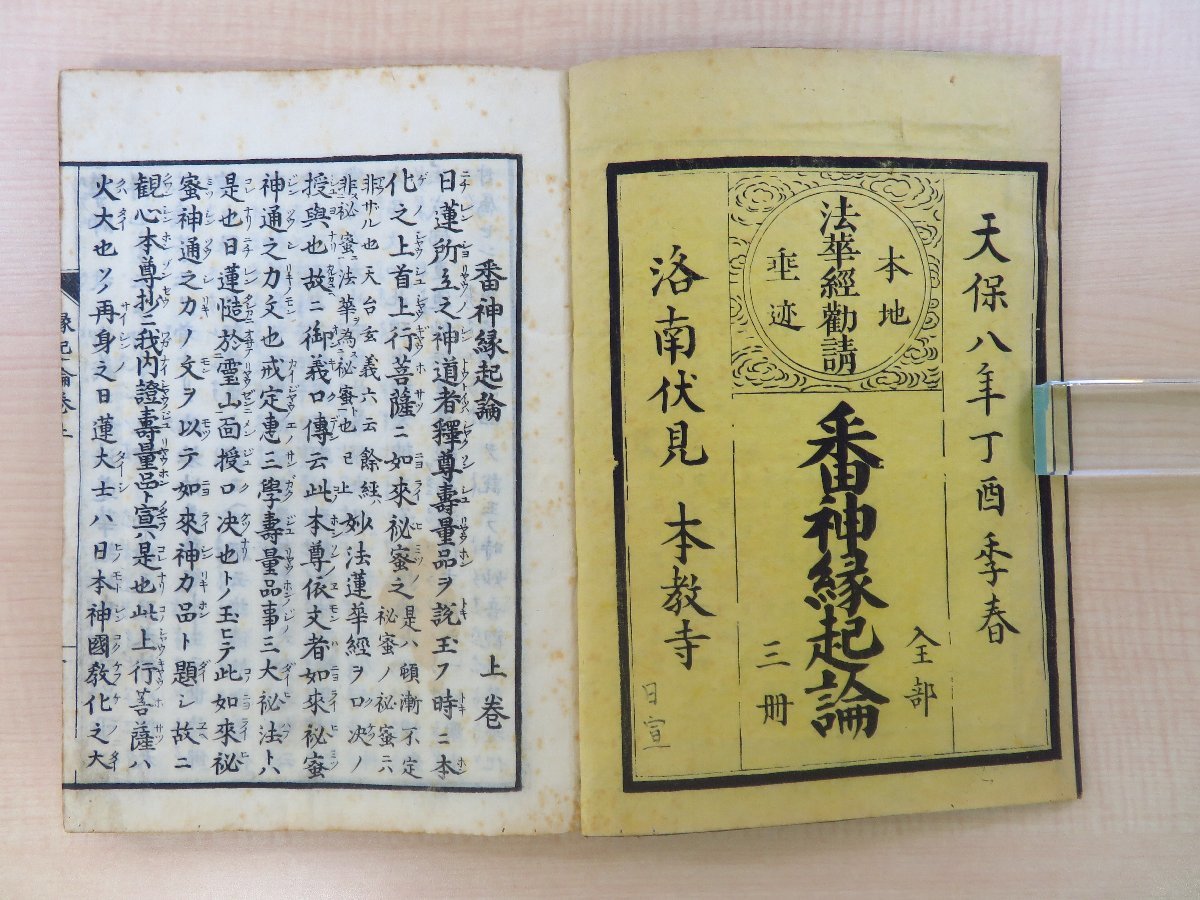 天保八年丁酉季春
本地
法華經勸請
垂迹
番神縁起論
全部
三冊
洛南伏見 本教寺
日宣
番神縁起論 上巻
日蓮所立之神道者釋尊壽量品ヲ説玉フ時ニ本
化之上首上行菩薩ニ如來祕蜜之是八頓漸不定祕蜜ノ祕蜜ニハ
非サル也天台玄義六云餘經ハ非祕蜜法華為祕蜜也已上妙法蓮華經ヲ口决ノ
授與也故ニ御義口傳云此本尊依文者如來祕蜜
神通之力文也戒定恵三學壽量品事三大祕法トハ
是也日蓮慥於靈山面授口决也トノ玉ヒテ此如來祕
蜜神通之力ノ文ヲ以テ如來神力品ト題シ故ニ
観心本尊抄ニ我内證壽量品ト宣ハ是也此上行菩薩ハ
火大也ソノ再身之日蓮大士ハ日本神國教化之大